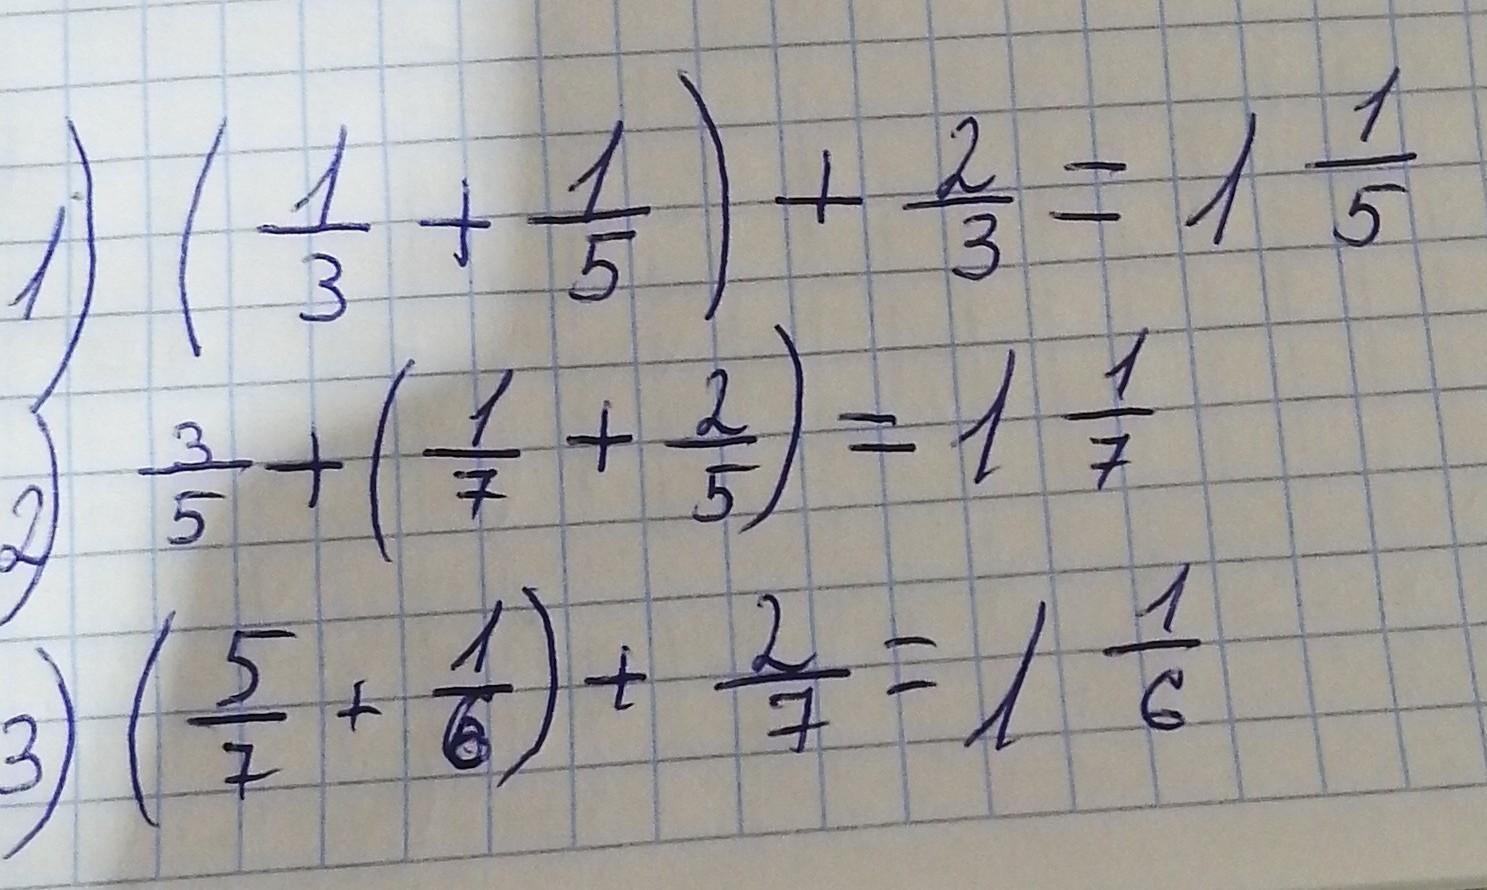 1) (1/3 + 1/5) + 2/3 = 1 1/5
2) 3/5 + (1/7 + 2/5) = 1 1/7
3) (5/7 + 1/6) + 2/7 = 1 1/6